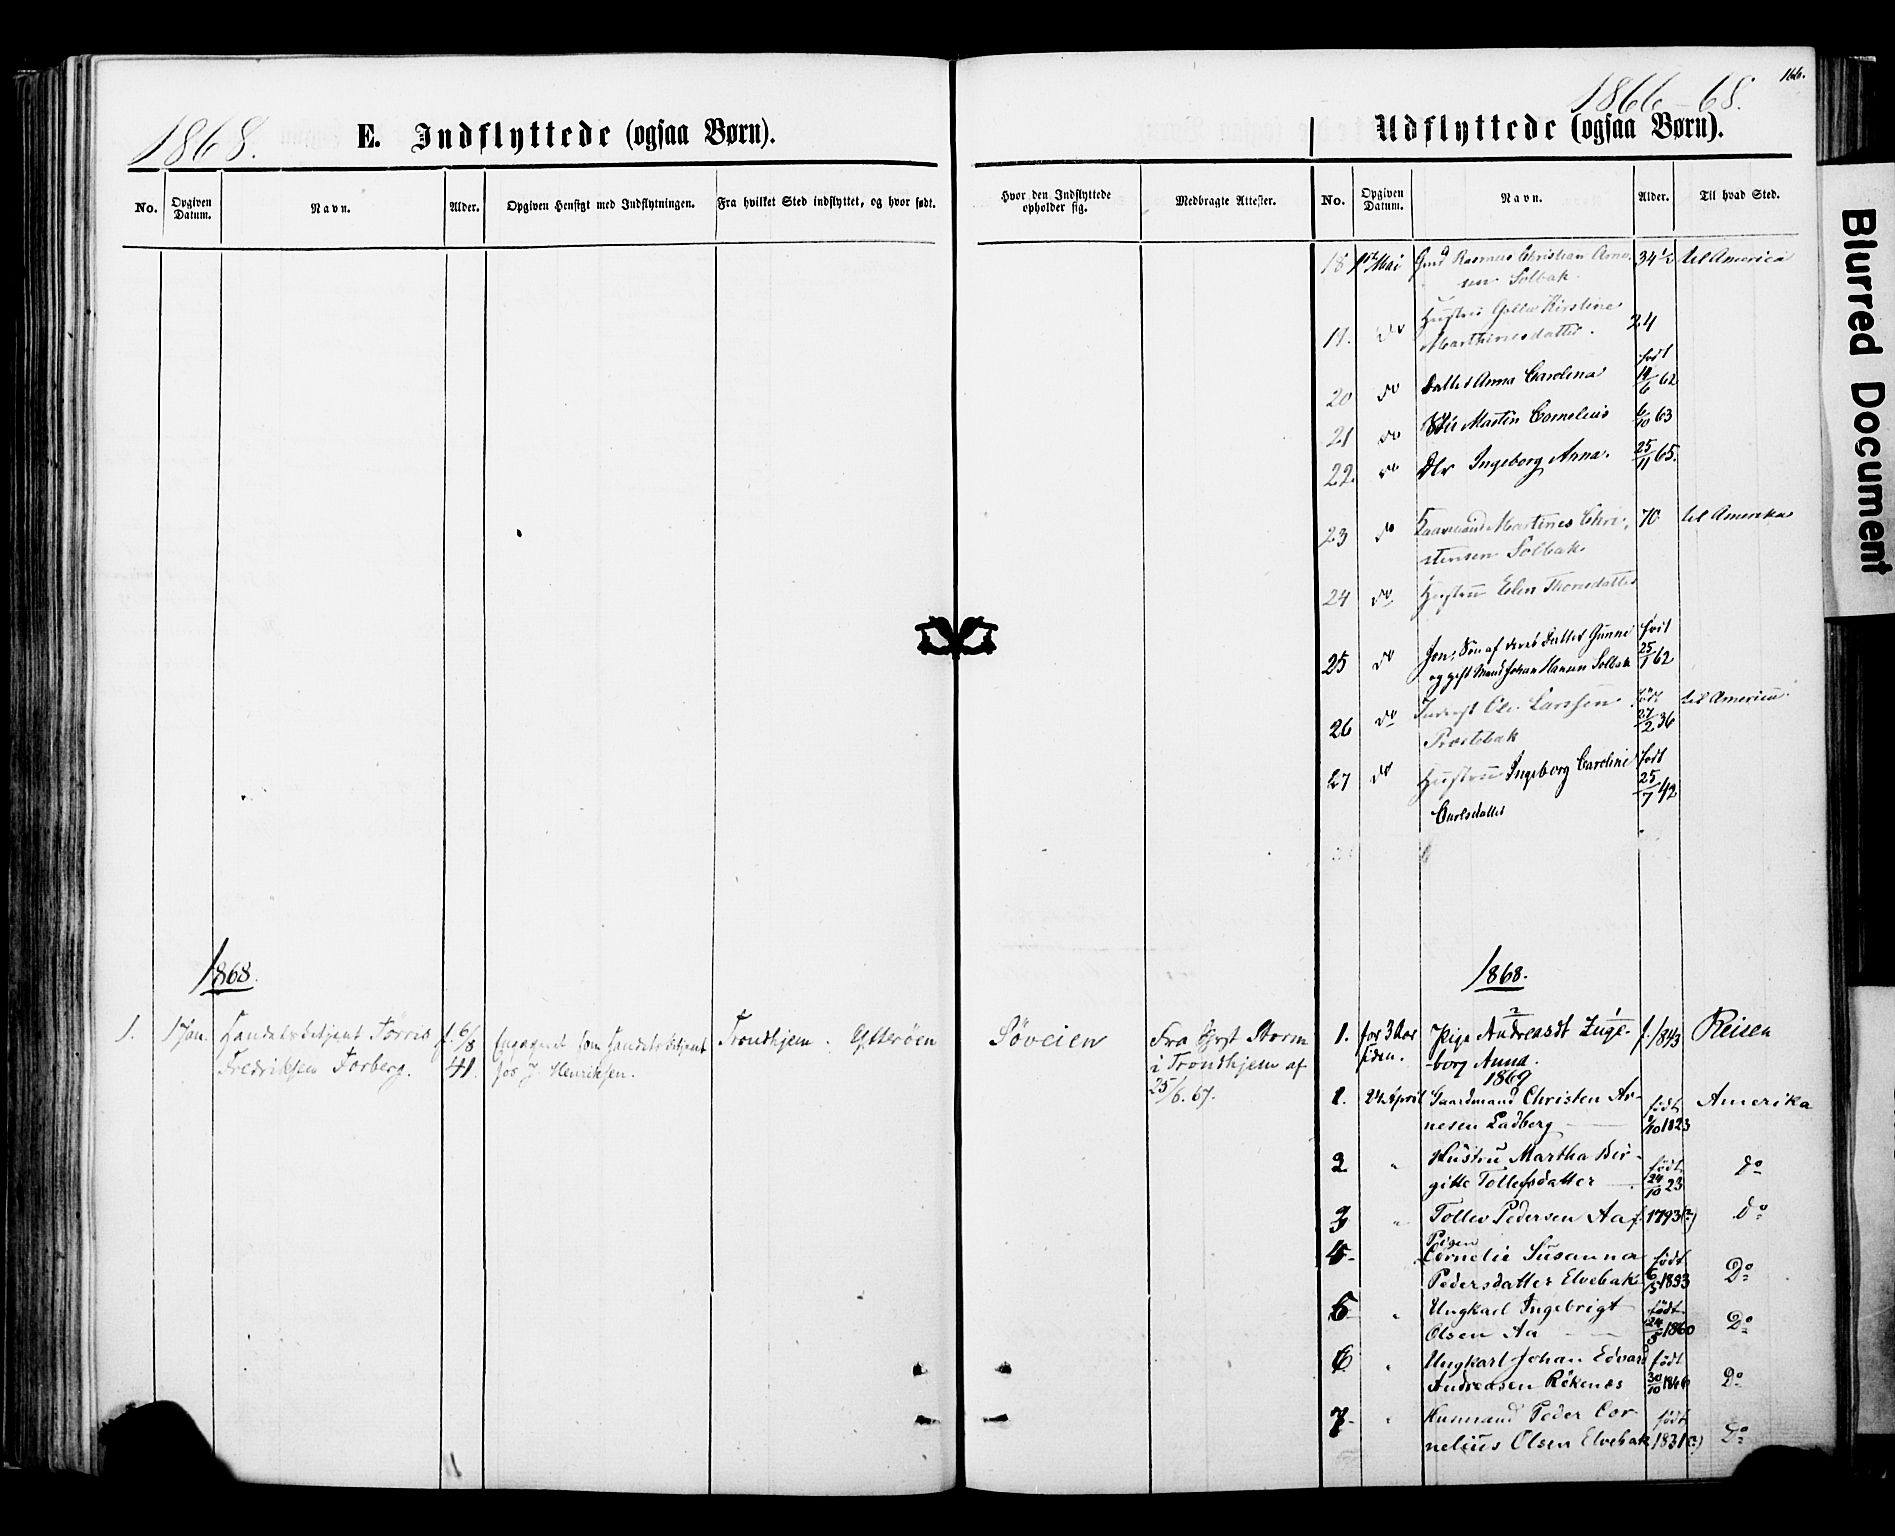 1868.
E. Indflyttede (ogsaa Børn).
No.
Opgiven Datum.
Navn.
Alder.
Opgiven Hensigt med Indflytningen.
Fra hvilket Sted indflyttet, og hvor født.
1868.
1.
1 Jan.
Handelsbetjent Tørris
Fredriksen Forberg.
f. 6/8
41.
Engageret som Handelsbetjent
hos J. Henriksen.
Trondhjem. Ytterøen
166.
1866-68.
Udflyttede (ogsaa Børn).
Hvor den Indflyttede opholder sig.
Medbragte Attester.
No.
Opgiven Datum.
Navn.
Alder.
Til hvad Sted.
Søveien
Fra Sgpr Storm
i Trondhjem af
25/6. 67.
18 Mai Rasmus Christian Arne-
sen Solbak
34½ til America
19. do Hustru Kirstine
Marthinesdatter.
24
20 do Datter Anna Carolina
født 14/6 62
21 do Martin Cornelius 6/10 63
22. do Dtr Ingeborg Anna. 25/11 65.
23 do Kaarmand Martines Chri-
stensen Solbak
70 til Amerika
24 do Hustru Elen Thomedatter
25 do Jens, Søn af deres Datter Gunne
og gift Mand Johan Hansen Solbak
født 25/1 62
26 do Inderst Ole Larssen
Præstbak
født 27/2 36 til America
27 do Hustru Ingeborg Caroline
Carlsdatter
født 25/7 42
1868.
1. for 3 Aar
siden.
Pige Andreasdt Inge-
borg Anna.
f. 1843 Reisen
1869
1. 24 April Gaardmand Christen Ar-
nesen Ladberg
født 1823 Amerika
2 " Hustru Martha Bir-
gitte Tollefsdatter
født 24/10 23 Do
3 " Tollev Pedersen Aa f. 1793(?) Do
4 - Pigen
Cornelie Susanna
Pedersdatter Elvebak
født 6/5 1853 Do
5 " Ungkarl Ingebrigt
Olsen Aa
født 24/5 1860 Do
6 " Ungkarl Johan Edvard
Andreasen Røkenes
født 30/10 1846 Do
7 - " Husmand Peder Cor-
nelius Olsen Elvebak
født 1831(?) Do
Blurred Document